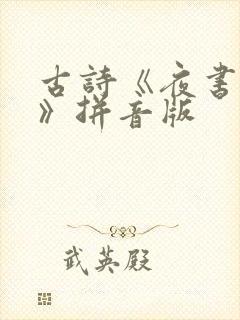 古詩《夜書
》拼音版
武英殿